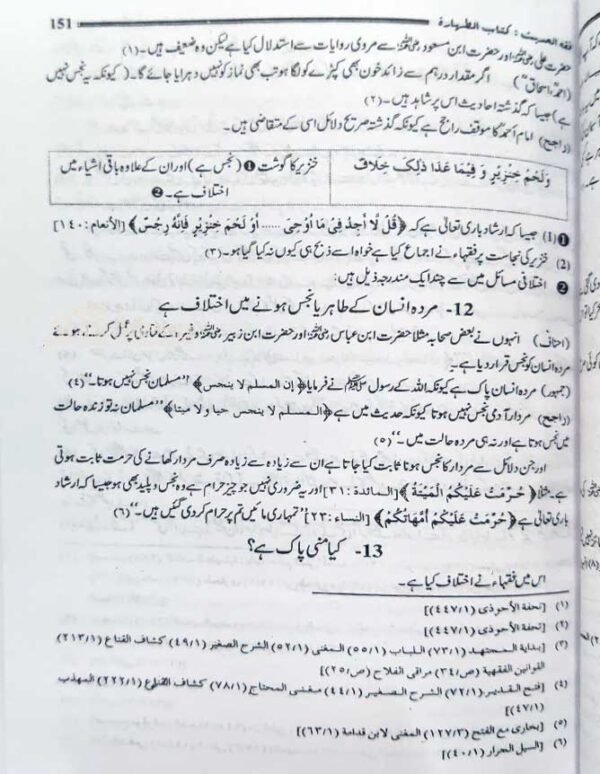 فقہ الحدیث : کتاب الطہارۃ 151
حضرت علی رضی اللہ عنہ اور حضرت ابن مسعود رضی اللہ عنہ سے مروی روایات سے استدلال کیا ہے لیکن وہ ضعیف ہیں۔(۱)
(احمدؒ، اسحاقؒ) اگر مقدار درہم سے زائد خون بھی کپڑے کو لگا ہو تب بھی نماز کو نہیں دہرایا جائے گا۔ (کیونکہ یہ نجس نہیں
ہے) جیسا کہ گذشتہ احادیث اس پر شاہد ہیں۔(۲)
(راجح) امام احمدؒ کا موقف راجح ہے کیونکہ گذشتہ صریح دلائل اسی کے متقاضی ہیں۔
وَلَحْمِ خِنْزِيرٍ وَ فِيمَا عَدَا ذٰلِكَ خِلَافٌ
خنزیر کا گوشت ❶ (نجس ہے) اور ان کے علاوہ باقی اشیاء میں
اختلاف ہے۔ ❷
❶ (1) جیسا کہ ارشاد باری تعالیٰ ہے کہ ﴿قُلْ لَّا أَجِدُ فِيْ مَا أُوْحِيَ ..... أَوْ لَحْمَ خِنْزِيرٍ فَإِنَّهُ رِجْسٌ﴾ [الأنعام : ١٤٠]
(2) خنزیر کی نجاست پر فقہاء نے اجماع کیا ہے خواہ اسے ذبح ہی کیوں نہ کیا گیا ہو۔(۳)
❷ اختلافی مسائل میں سے چند ایک مندرجہ ذیل ہیں:
12- مردہ انسان کے طاہر یا نجس ہونے میں اختلاف ہے
(احناف) انہوں نے بعض صحابہ مثلا حضرت ابن عباس رضی اللہ عنہ اور حضرت ابن زبیر رضی اللہ عنہ وغیرہ کے فتاوی پر عمل کرتے ہوئے
مردہ انسان کو نجس قرار دیا ہے۔
(جمہور) مردہ انسان پاک ہے کیونکہ اللہ کے رسول ﷺ نے فرمایا ﴿إن المسلم لا ينجس﴾ "مسلمان نجس نہیں ہوتا۔"(۴)
(راجح) مردار آدمی نجس نہیں ہوتا کیونکہ حدیث میں ہے ﴿المسلم لا ينجس حيا و لا ميتا﴾ "مسلمان نہ تو زندہ حالت
میں نجس ہوتا ہے اور نہ ہی مردہ حالت میں۔"(۵)
اور جن دلائل سے مردار کا نجس ہونا ثابت کیا جاتا ہے ان سے زیادہ سے زیادہ صرف مردار کھانے کی حرمت ثابت ہوتی
ہے۔ مثلا ﴿حُرِّمَتْ عَلَيْكُمُ الْمَيْتَةُ﴾ [المائدة : ٣١] اور یہ ضروری نہیں جو چیز حرام ہے وہ نجس و پلید بھی ہو جیسا کہ ارشاد
باری تعالیٰ ہے ﴿حُرِّمَتْ عَلَيْكُمْ أُمَّهَاتُكُمْ﴾ [النساء : ٢٣] "تمہاری مائیں تم پر حرام کر دی گئیں ہیں۔"(۶)
13- کیا منی پاک ہے؟
اس میں فقہاء نے اختلاف کیا ہے۔
(۱) [تحفة الأحوذى (٤٤٧/١)]
(۲) [تحفة الأحوذى (٤٤٧/١)]
(۳) [بداية المجتهد (٧٣/١) اللباب (٥٥/١) المغنى (٥٢/١) الشرح الصغير (٤٩/١) كشاف القناع (٢١٣/١)
القوانين الفقهية (ص/٣٤) مراقى الفلاح (ص/٢٥)]
(٤) [فتح القدير (٧٢/١) الشرح الصغير (٤٤/١) مغنى المحتاج (٧٨/١) كشاف القناع (٢٢٢/١) المهذب
(٤٧/١)]
(٥) [بخارى مع الفتح (١٢٧/٣) المغنى لابن قدامة (٦٣/١)]
(٦) [السيل الجرار (٤٠/١)]